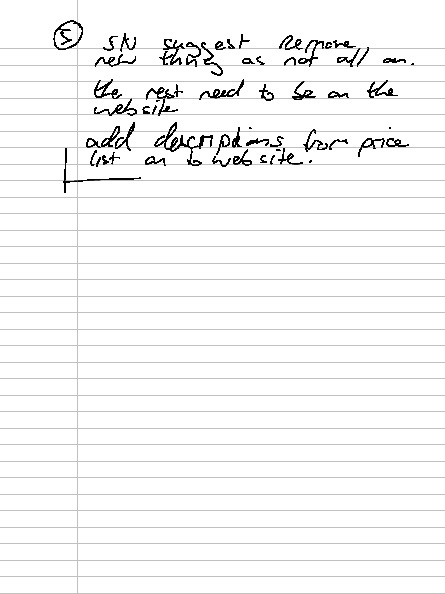 ⑤ SN suggest remove
new thing as not all on.
the rest need to be on the
website
add descriptions from price
list on to website.